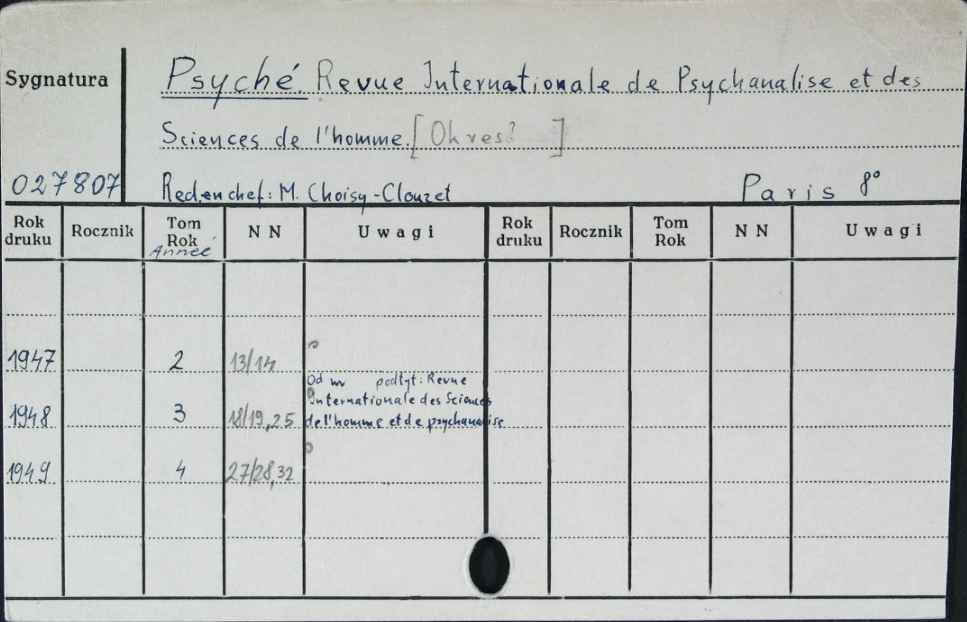 Sygnatura
Psyché. Revue Internationale de Psychanalise et des
Sciences de l'homme. [Okres? ]
027807
Red. en chef: M. Choisy-Clouzet Paris 8°
Rok druku Rocznik Tom Rok Année NN Uwagi Rok druku Rocznik Tom Rok NN Uwagi
1947 2 13/14
Od nr podtyt: Revue
Internationale des Sciences
1948 3 18/19, 25 de l'homme et de psychanalise
1949 4 27/28, 32